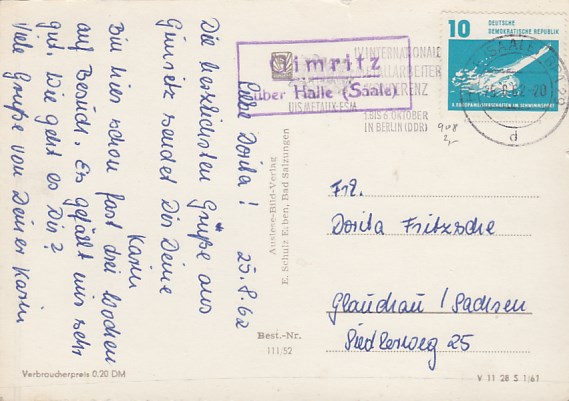 Liebe Dorita! 25.8.62
Die herzlichsten Grüße aus
Gimritz sendet Dir Deine
Karin
Bin hier schon fast drei Wochen
auf Besuch. Es gefällt mir sehr
gut. Wie geht es Dir?
Viele Grüße von Deiner Karin
Verbraucherpreis 0.20 DM
Gimritz
über Halle (Saale)
IV INTERNATIONALE
METALLARBEITER
KONFERENZ
UIS METAUX-FSM
1 BIS 6 OKTOBER
IN BERLIN (DDR)
d
10 DEUTSCHE
DEMOKRATISCHE REPUBLIK
X. EUROPAMEISTERSCHAFTEN IM SCHWIMMSPORT
908
2,-
Auslese-Bild-Verlag
E. Schulz Erben, Bad Salzungen
Best.-Nr.
111/52
Frl.
Dorita Fritzsche
Glauchau / Sachsen
Siedlerweg 25
V 11 28 S 1/61